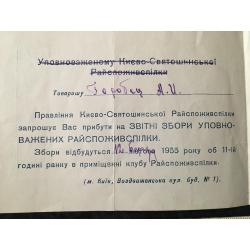 Уповноваженому Києво-Святошинської
Райспоживспілки
Товаришу
Правління Києво-Святошинської Райспоживспілки
запрошує Вас прибути на ЗВІТНІ ЗБОРИ УПОВНО-
ВАЖЕНИХ РАЙСПОЖИВСПІЛКИ.
Збори відбудуться 1955 року об 11-й
годині ранку в приміщенні клубу Райспоживспілки.
(м. Київ, Воздвиженська вул. буд. № 1).